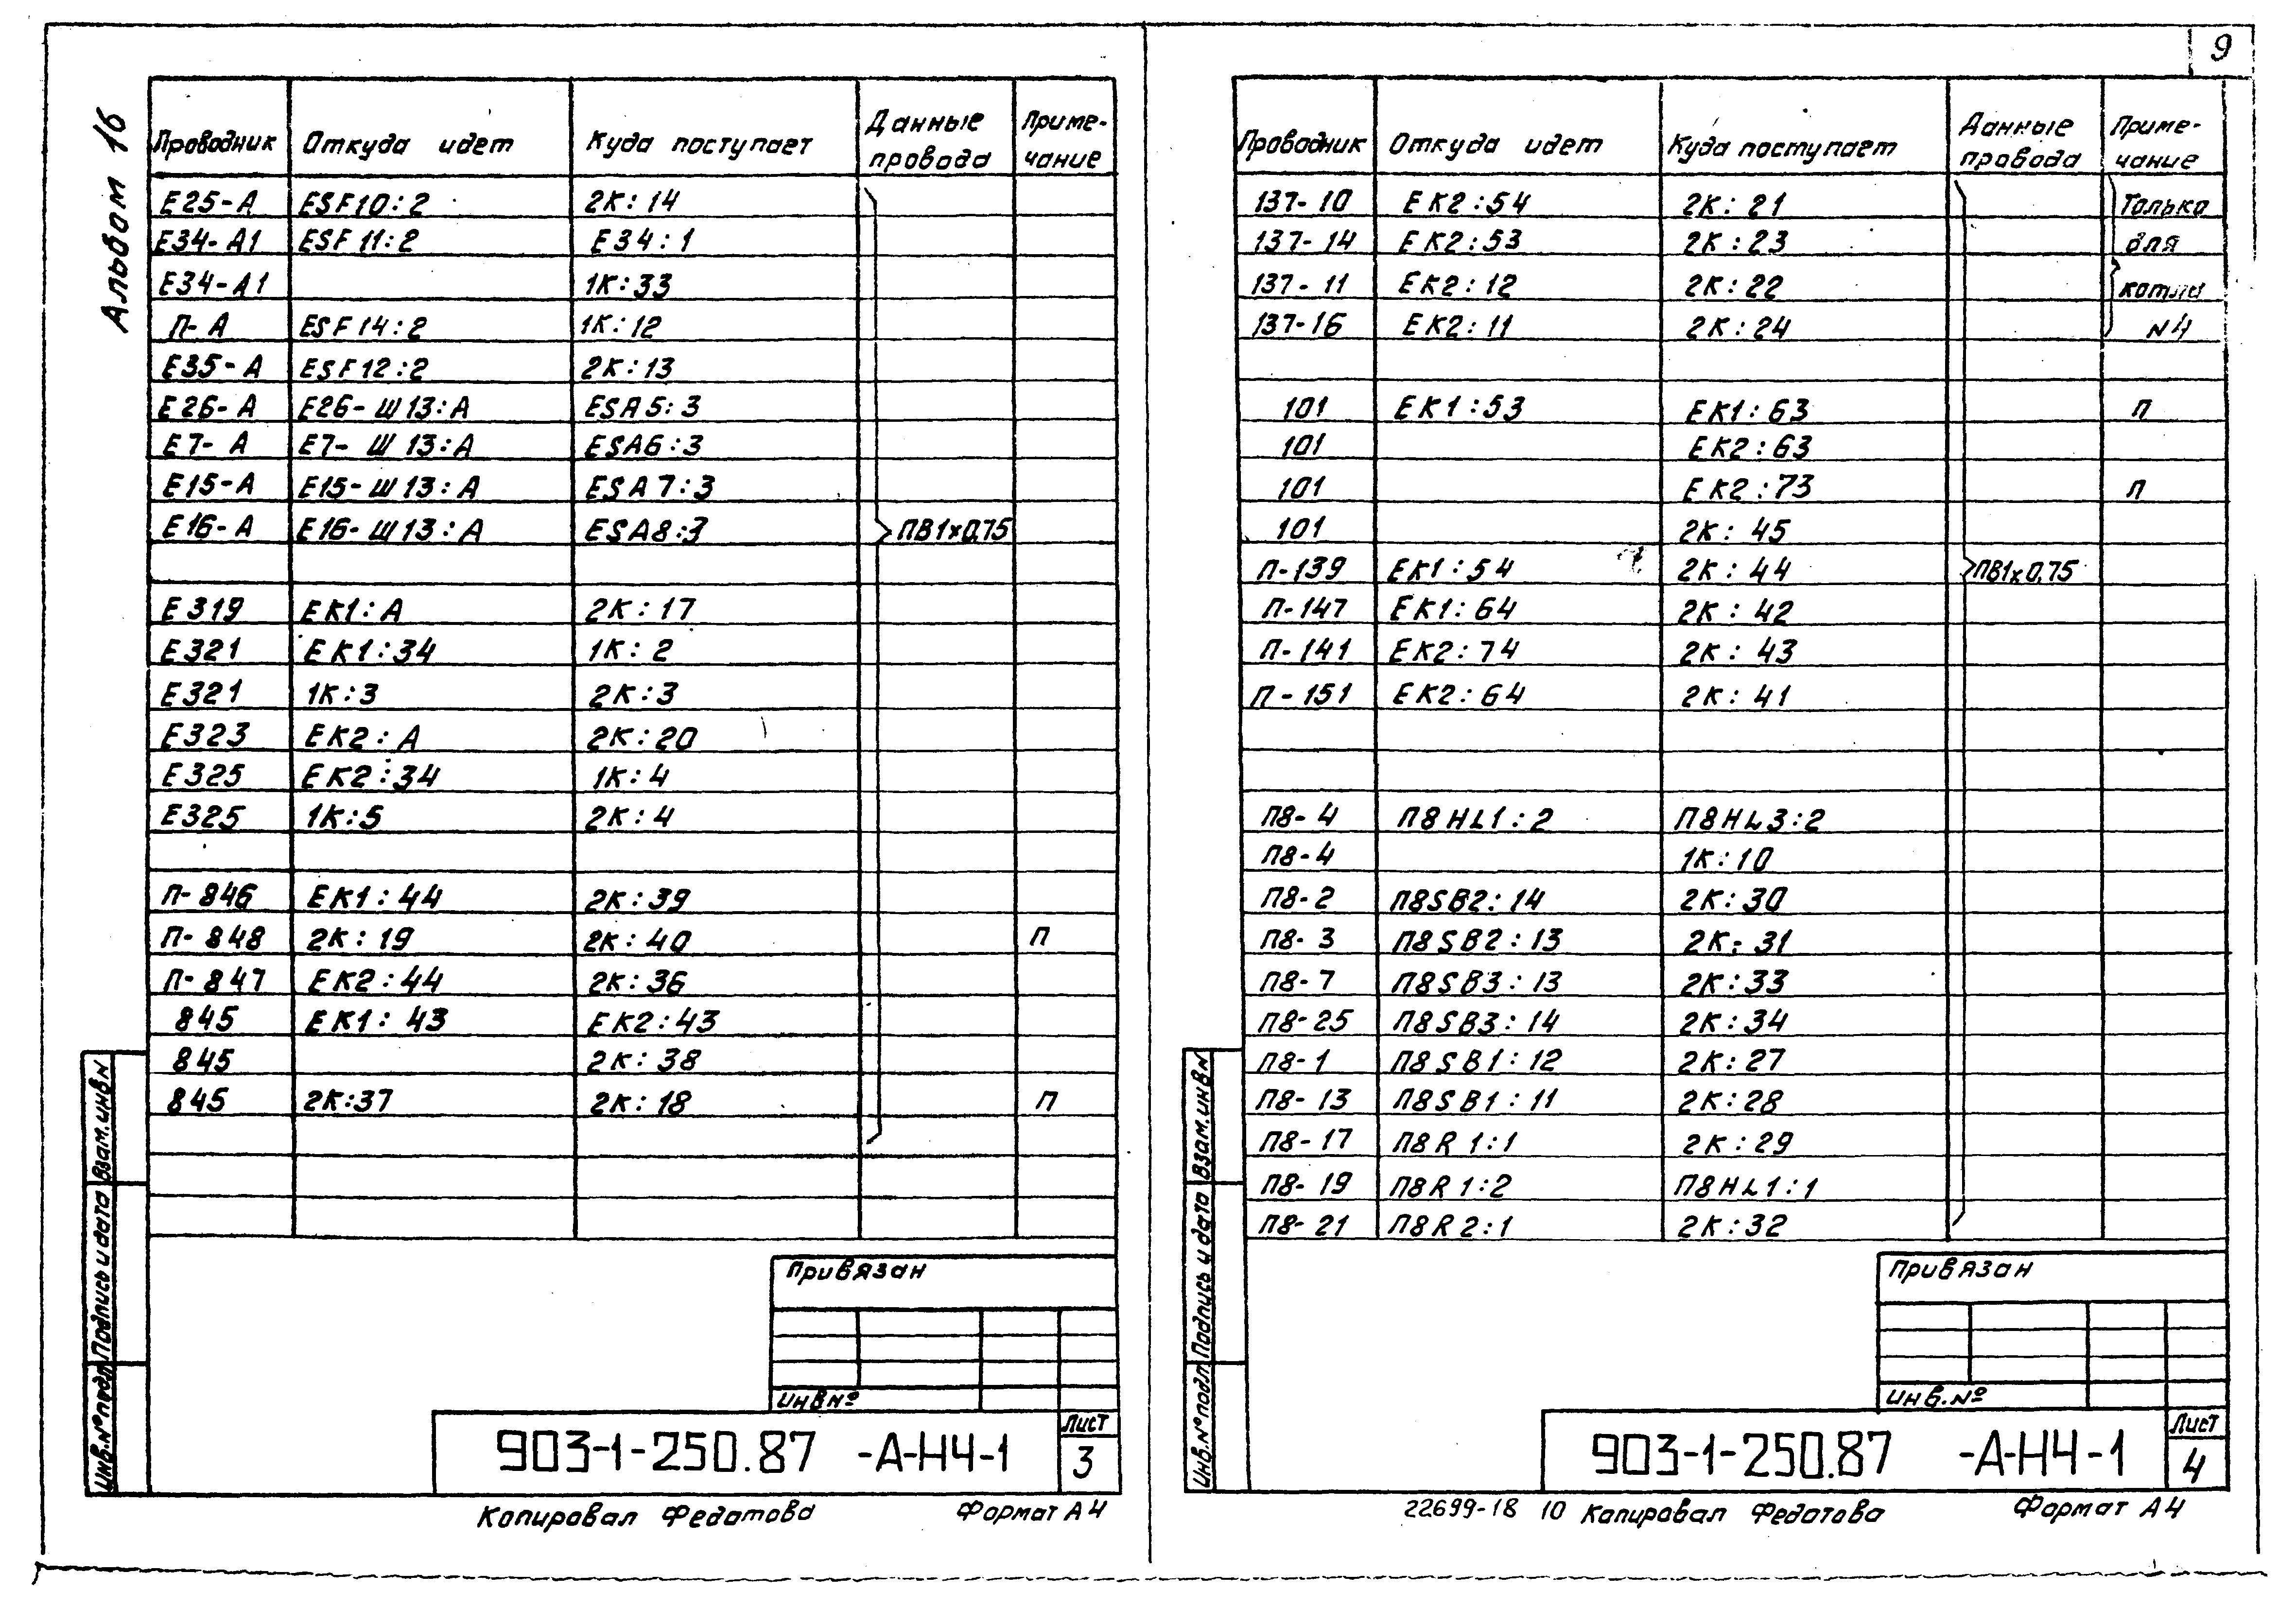 9
Альбом 16
Проводник Откуда идет Куда поступает Данные провода Приме-чание
Е25-А ESF10:2 2К:14
Е34-А1 ESF11:2 Е34:1
Е34-А1 1К:33
П-А ESF14:2 1К:12
Е35-А ESF12:2 2К:13
Е26-А Е26-Ш13:А ESA5:3
Е7-А Е7-Ш13:А ESA6:3
Е15-А Е15-Ш13:А ESA7:3
Е16-А Е16-Ш13:А ESA8:3 ПВ1х0,75
Е319 ЕК1:А 2К:17
Е321 ЕК1:34 1К:2
Е321 1К:3 2К:3
Е323 ЕК2:А 2К:20
Е325 ЕК2:34 1К:4
Е325 1К:5 2К:4
П-846 ЕК1:44 2К:39
П-848 2К:19 2К:40 П
П-847 ЕК2:44 2К:36
845 ЕК1:43 ЕК2:43
845 2К:38
845 2К:37 2К:18 П
Взам.инв№
Подпись и дата
Инв.№подл.
Привязан
инв№
903-1-250.87 -А-НЧ-1
Лист
3
Копировал Федатова Формат А4
Проводник Откуда идет Куда поступает Данные провода Приме-чание
137-10 ЕК2:54 2К:21 Только
137-14 ЕК2:53 2К:23 для
137-11 ЕК2:12 2К:22 котла
137-16 ЕК2:11 2К:24 №4
101 ЕК1:53 ЕК1:63 П
101 ЕК2:63
101 ЕК2:73 П
101 2К:45
П-139 ЕК1:54 2К:44 ПВ1х0,75
П-147 ЕК1:64 2К:42
П-141 ЕК2:74 2К:43
П-151 ЕК2:64 2К:41
П8-4 П8HL1:2 П8HL3:2
П8-4 1К:10
П8-2 П8SB2:14 2К:30
П8-3 П8SB2:13 2К:31
П8-7 П8SB3:13 2К:33
П8-25 П8SB3:14 2К:34
П8-1 П8SB1:12 2К:27
П8-13 П8SB1:11 2К:28
П8-17 П8R1:1 2К:29
П8-19 П8R1:2 П8HL1:1
П8-21 П8R2:1 2К:32
Взам.инв№
Подпись и дата
Инв.№подл.
Привязан
инв.№
903-1-250.87 -А-НЧ-1
Лист
4
22699-18 10 Копировал Федатова Формат А4